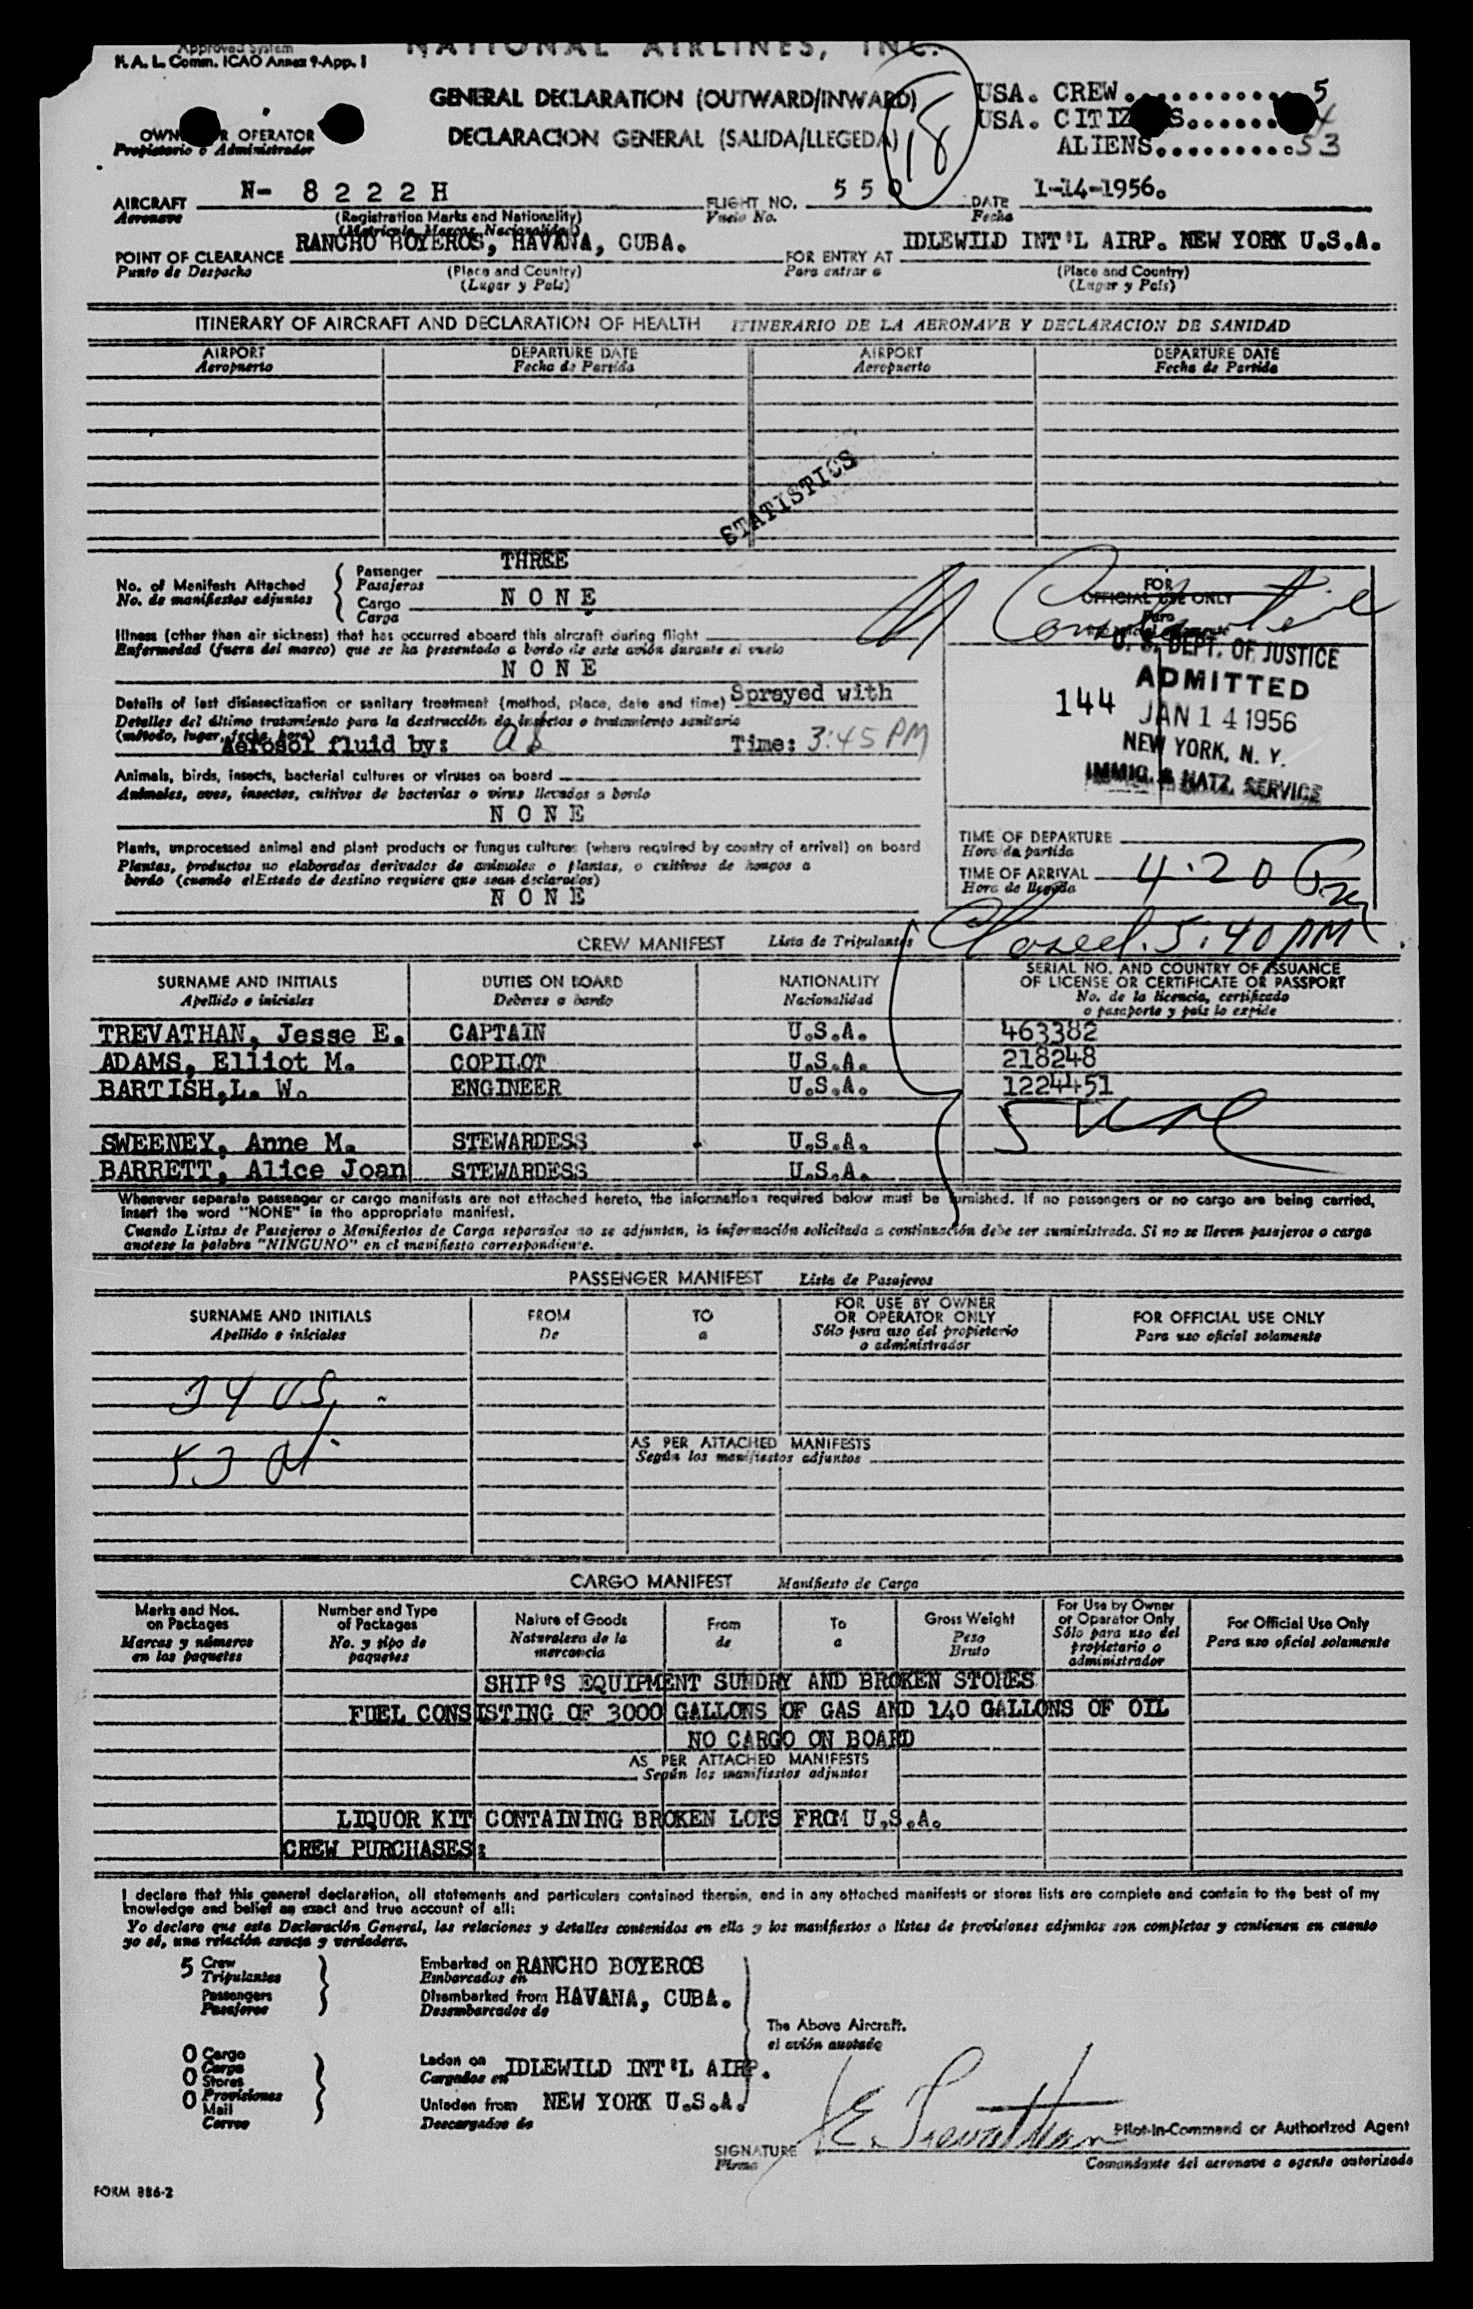 Approved System
K. A. L. Comm. ICAO Annex 9-App. 1
NATIONAL AIRLINES, INC.
18
GENERAL DECLARATION (OUTWARD/INWARD)
DECLARACION GENERAL (SALIDA/LLEGEDA)
USA. CREW............ 5
USA. CITIZ S.......
ALIENS..........53
OWN R OPERATOR
Propietario o Administrador
AIRCRAFT N- 8222H FLIGHT NO. 550 DATE 1-14-1956.
Aeronave (Registration Marks and Nationality) Vuelo No. Fecha
(Matricula, Marcas, Nacionalidad)
POINT OF CLEARANCE RANCHO BOYEROS, HAVANA, CUBA. FOR ENTRY AT IDLEWILD INT'L AIRP. NEW YORK U.S.A.
Punto de Despacho (Place and Country) Para entrar a (Place and Country)
(Lugar y País) (Lugar y País)
ITINERARY OF AIRCRAFT AND DECLARATION OF HEALTH ITINERARIO DE LA AERONAVE Y DECLARACION DE SANIDAD
AIRPORT DEPARTURE DATE AIRPORT DEPARTURE DATE
Aeropuerto Fecha de Partida Aeropuerto Fecha de Partida
STATISTICS
No. of Manifests Attached Passenger THREE
No. de manifiestos adjuntos Pasajeros
Cargo NONE
Carga
Illness (other than air sickness) that has occurred aboard this aircraft during flight
Enfermedad (fuera del mareo) que se ha presentado a bordo de este avión durante el vuelo
NONE
Details of last disinsectization or sanitary treatment (method, place, date and time) Sprayed with
Detalles del último tratamiento para la destrucción de insectos o tratamiento sanitario
(método, lugar, fecha, hora)
Aerosol fluid by: Time: 3:45 PM
Animals, birds, insects, bacterial cultures or viruses on board
Animales, aves, insectos, cultivos de bacterias o virus llevados a bordo
NONE
Plants, unprocessed animal and plant products or fungus cultures (where required by country of arrival) on board
Plantas, productos no elaborados derivados de animales o plantas, o cultivos de hongos a
bordo (cuando elEstado de destino requiere que sean declarados)
NONE
FOR
OFFICIAL USE ONLY
Para
U. S. DEPT. OF JUSTICE
ADMITTED
144 JAN 14 1956
NEW YORK, N. Y.
IMMIG. & NATZ. SERVICE
TIME OF DEPARTURE
Hora de partida
TIME OF ARRIVAL 4:20 Pm
Hora de llegada
Closed. 5:40 PM
CREW MANIFEST Lista de Tripulantes
SURNAME AND INITIALS DUTIES ON BOARD NATIONALITY SERIAL NO. AND COUNTRY OF ISSUANCE
OF LICENSE OR CERTIFICATE OR PASSPORT
Apellido e iniciales Deberes a bordo Nacionalidad No. de la licencia, certificado
o pasaporte y país lo expide
TREVATHAN, Jesse E. CAPTAIN U.S.A. 463382
ADAMS, Elliot M. COPILOT U.S.A. 218248
BARTISH,L. W. ENGINEER U.S.A. 1224451
5 USC
SWEENEY, Anne M. STEWARDESS U.S.A.
BARRETT, Alice Joan STEWARDESS U.S.A.
Whenever separate passenger or cargo manifests are not attached hereto, the information required below must be furnished. If no passengers or no cargo are being carried,
insert the word "NONE" in the appropriate manifest.
Cuando Listas de Pasajeros o Manifiestos de Carga separados no se adjuntan, la información solicitada a continuación debe ser suministrada. Si no se lleven pasajeros o carga
anotese la palabra "NINGUNO" en el manifiesto correspondiente.
PASSENGER MANIFEST Lista de Pasajeros
SURNAME AND INITIALS FROM TO FOR USE BY OWNER OR OPERATOR ONLY FOR OFFICIAL USE ONLY
Apellido e iniciales De a Sólo para uso del propietario o administrador Para uso oficial solamente
34 US.
53 Al.
AS PER ATTACHED MANIFESTS
Según los manifiestos adjuntos
CARGO MANIFEST Manifiesto de Carga
Marks and Nos. on Packages Number and Type of Packages Nature of Goods From To Gross Weight For Use by Owner or Operator Only For Official Use Only
Marcas y números en los paquetes No. y tipo de paquetes Naturaleza de la mercancia de a Peso Bruto Sólo para uso del propietario o administrador Para uso oficial solamente
SHIP'S EQUIPMENT SUNDRY AND BROKEN STORES
FUEL CONSISTING OF 3000 GALLONS OF GAS AND 140 GALLONS OF OIL
NO CARGO ON BOARD
AS PER ATTACHED MANIFESTS
Según los manifiestos adjuntos
LIQUOR KIT CONTAINING BROKEN LOTS FROM U.S.A.
CREW PURCHASES:
I declare that this general declaration, all statements and particulars contained therein, and in any attached manifests or stores lists are complete and contain to the best of my
knowledge and belief an exact and true account of all:
Yo declaro que esta Declaración General, las relaciones y detalles contenidos en ella y los manifiestos o listas de provisiones adjuntos son completos y contienen en cuanto
yo sé, una relación exacta y verdadera.
5 Crew Embarked on RANCHO BOYEROS
Tripulantes Embarcados en
Passengers Disembarked from HAVANA, CUBA.
Pasajeros Desembarcados de
The Above Aircraft.
el avión anotado
0 Cargo Laden on IDLEWILD INT'L AIRP.
Carga Cargados en
0 Stores
Provisiones
0 Mail Unladen from NEW YORK U.S.A.
Correo Descargados de
SIGNATURE J. E. Trevathan Pilot-in-Command or Authorized Agent
Firma Comandante del aeronave o agente autorizado
FORM 886-2